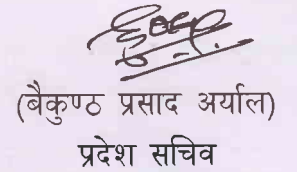 (बैकुण्ठ प्रसाद अर्याल)
प्रदेश सचिव